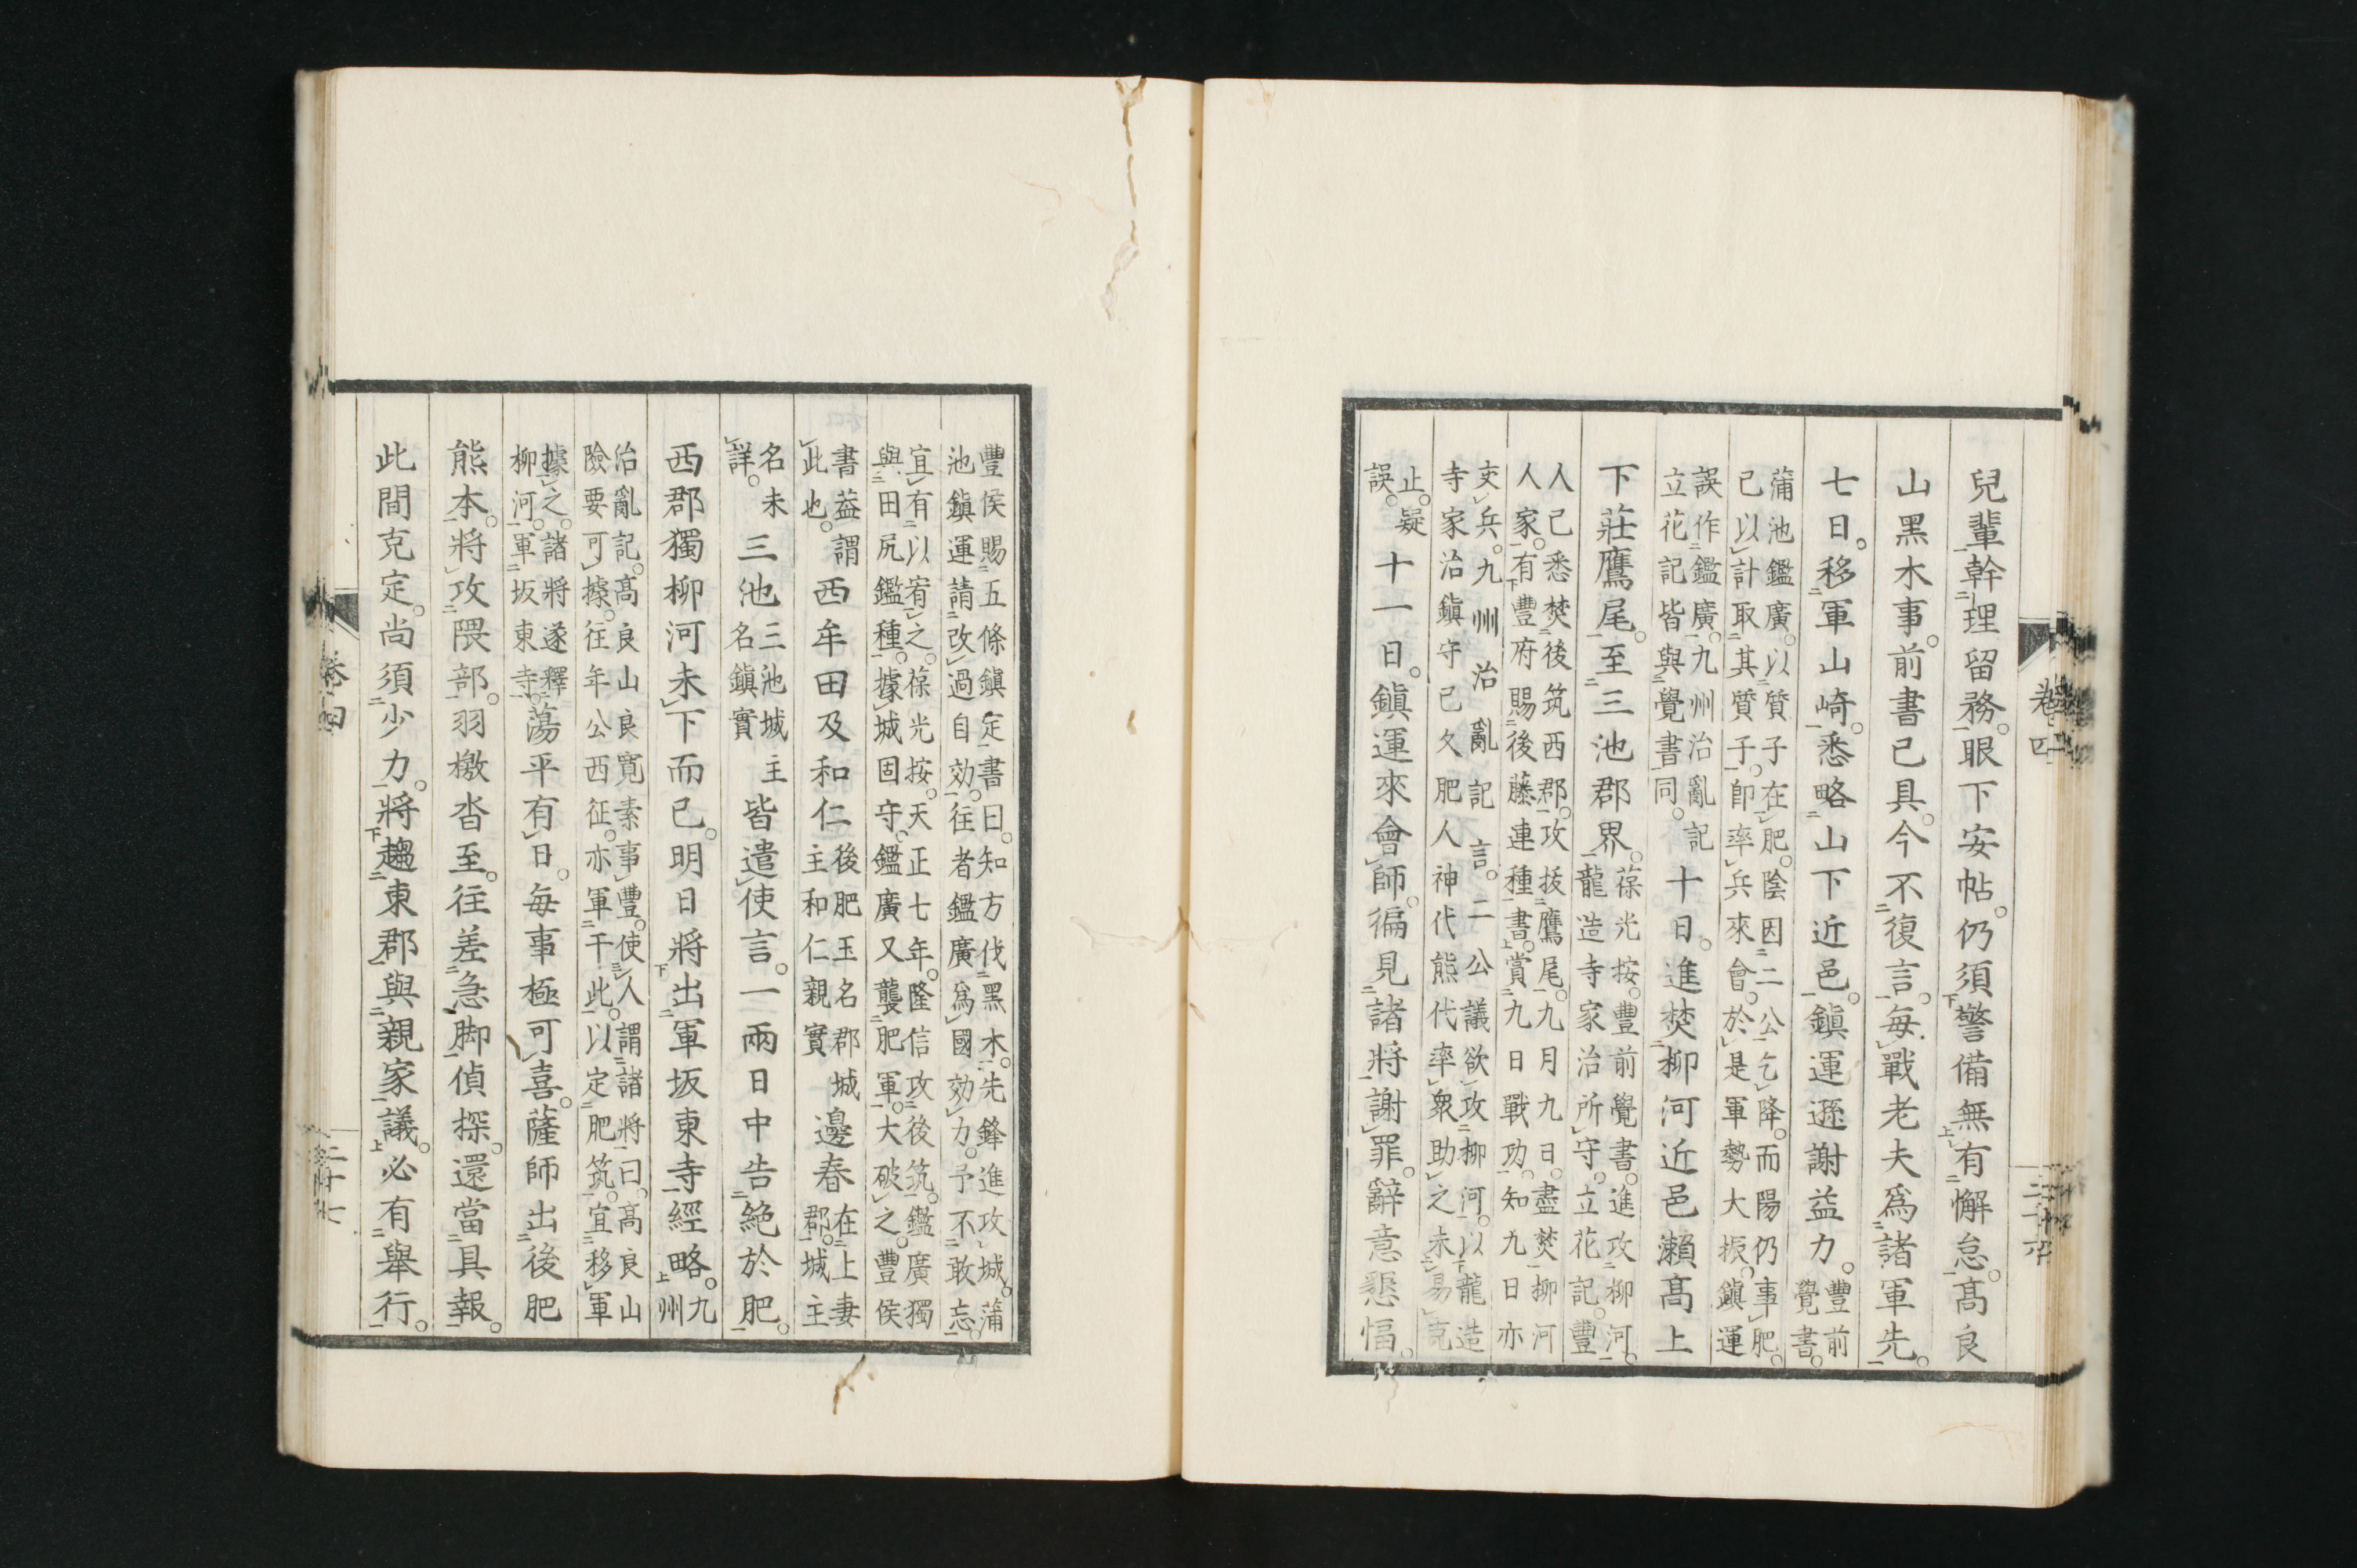 兒輩幹理留務。眼下安帖。仍須警備無有懈怠。高良
山黑木事。前書已具。今不復言。每戰老夫爲諸軍先。
七日。移軍山崎。悉略山下近邑。鎭運遜謝益力。豐前
覺書。
蒲池鑑廣。以質子在肥。陰因二公乞降。而陽仍事肥。
已以計取其質子。卽率兵來會。於是軍勢大振。鎭運
誤作鑑廣。九州治亂記
立花記皆與覺書同。
十日。進焚柳河近邑瀬高上
下莊鷹尾。至三池郡界。
葆光按。豐前覺書。進攻柳河。
龍造寺家治所守。立花記。豐
人已悉焚後筑西郡。攻拔鷹尾。九月九日。盡焚柳河
人家。有豐府賜後藤連種書。賞九日戰功。知九日亦
交兵。九州治亂記言。二公議欲攻柳河。以龍造
寺家治鎭守已久肥人神代熊代率衆助之未易克
止。疑
誤。
十一日。鎭運來會師。徧見諸將謝罪。辭意懇愊。
卷四
二十六
豐侯賜五條鎭定書曰。知方伐黑木。先鋒進攻城。蒲
池鎭運請改過自効。往者鑑廣爲國効力。予不敢忘。
宜有以宥之。葆光按。天正七年。隆信攻後筑。鑑廣獨
與田尻鑑種。據城固守。鑑廣又襲肥軍。大破之。豐侯
書益謂
此也。
西牟田及和仁
後肥玉名郡城
主和仁親實
邊春
在上妻
郡。城主
名未
詳。
三池
三池城主
名鎭實
皆遣使言。一兩日中告絶於肥。
西郡獨柳河未下而已。明日將出軍坂東寺經略。九
州
治亂記。高良山良寬素事豐。使人謂諸將曰。高良山
險要可據。往年公西征。亦軍于此。以定肥筑。宜移軍
據之。諸將遂釋
柳河。軍坂東寺。
蕩平有日。每事極可喜。薩師出後肥
熊本。將攻隈部。羽檄沓至。往差急脚偵探。還當具報。
此間克定。尚須少力。將趨東郡與親家議。必有舉行。
卷四
二十七